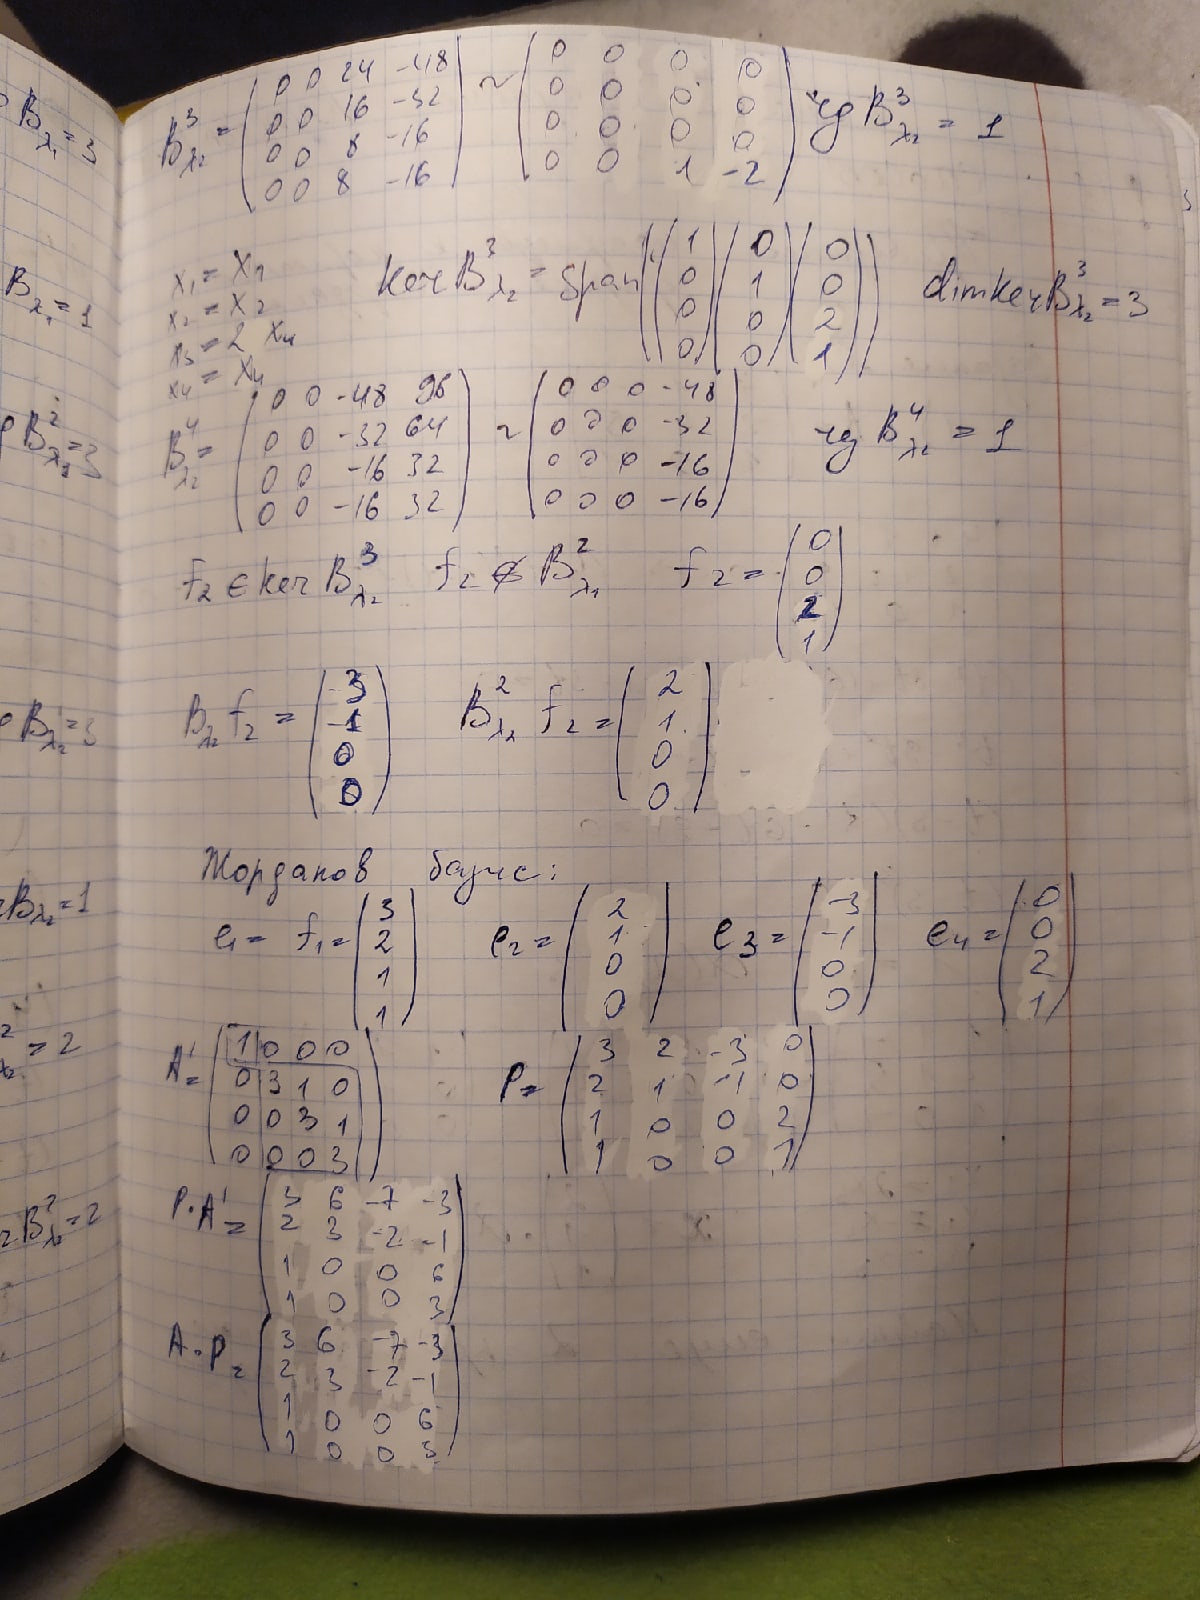 B³λ₂ = (0 0 24 -48; 0 0 16 -32; 0 0 8 -16; 0 0 8 -16) ~ (0 0 0 0; 0 0 0 0; 0 0 0 0; 0 0 1 -2) rg B³λ₂ = 1
x₁ = x₁
x₂ = x₂
x₃ = 2 x₄
x₄ = x₄
ker B³λ₂ = Span((1; 0; 0; 0) (0; 1; 0; 0) (0; 0; 2; 1)) dim ker B³λ₂ = 3
B⁴λ₂ = (0 0 -48 96; 0 0 -32 64; 0 0 -16 32; 0 0 -16 32) ~ (0 0 0 -48; 0 0 0 -32; 0 0 0 -16; 0 0 0 -16) rg B⁴λ₂ = 1
f₂ ∈ ker B³λ₂ f₂ ∉ B²λ₁ f₂ = (0; 0; 2; 1)
Bλ₂ f₂ = (-3; -1; 0; 0) B²λ₂ f₂ = (2; 1; 0; 0)
Жорданов базис:
e₁ = f₁ = (3; 2; 1; 1) e₂ = (2; 1; 0; 0) e₃ = (-3; -1; 0; 0) e₄ = (0; 0; 2; 1)
A' = (1 0 0 0; 0 3 1 0; 0 0 3 1; 0 0 0 3) P = (3 2 -3 0; 2 1 -1 0; 1 0 0 2; 1 0 0 1)
P·A' = (3 6 -7 -3; 2 3 -2 -1; 1 0 0 6; 1 0 0 3)
A·P = (3 6 -7 -3; 2 3 -2 -1; 1 0 0 6; 1 0 0 3)
Bλ₁ = 3
Bλ₁ = 1
Bλ₂ = 3
Bλ₂ = 1
= 2